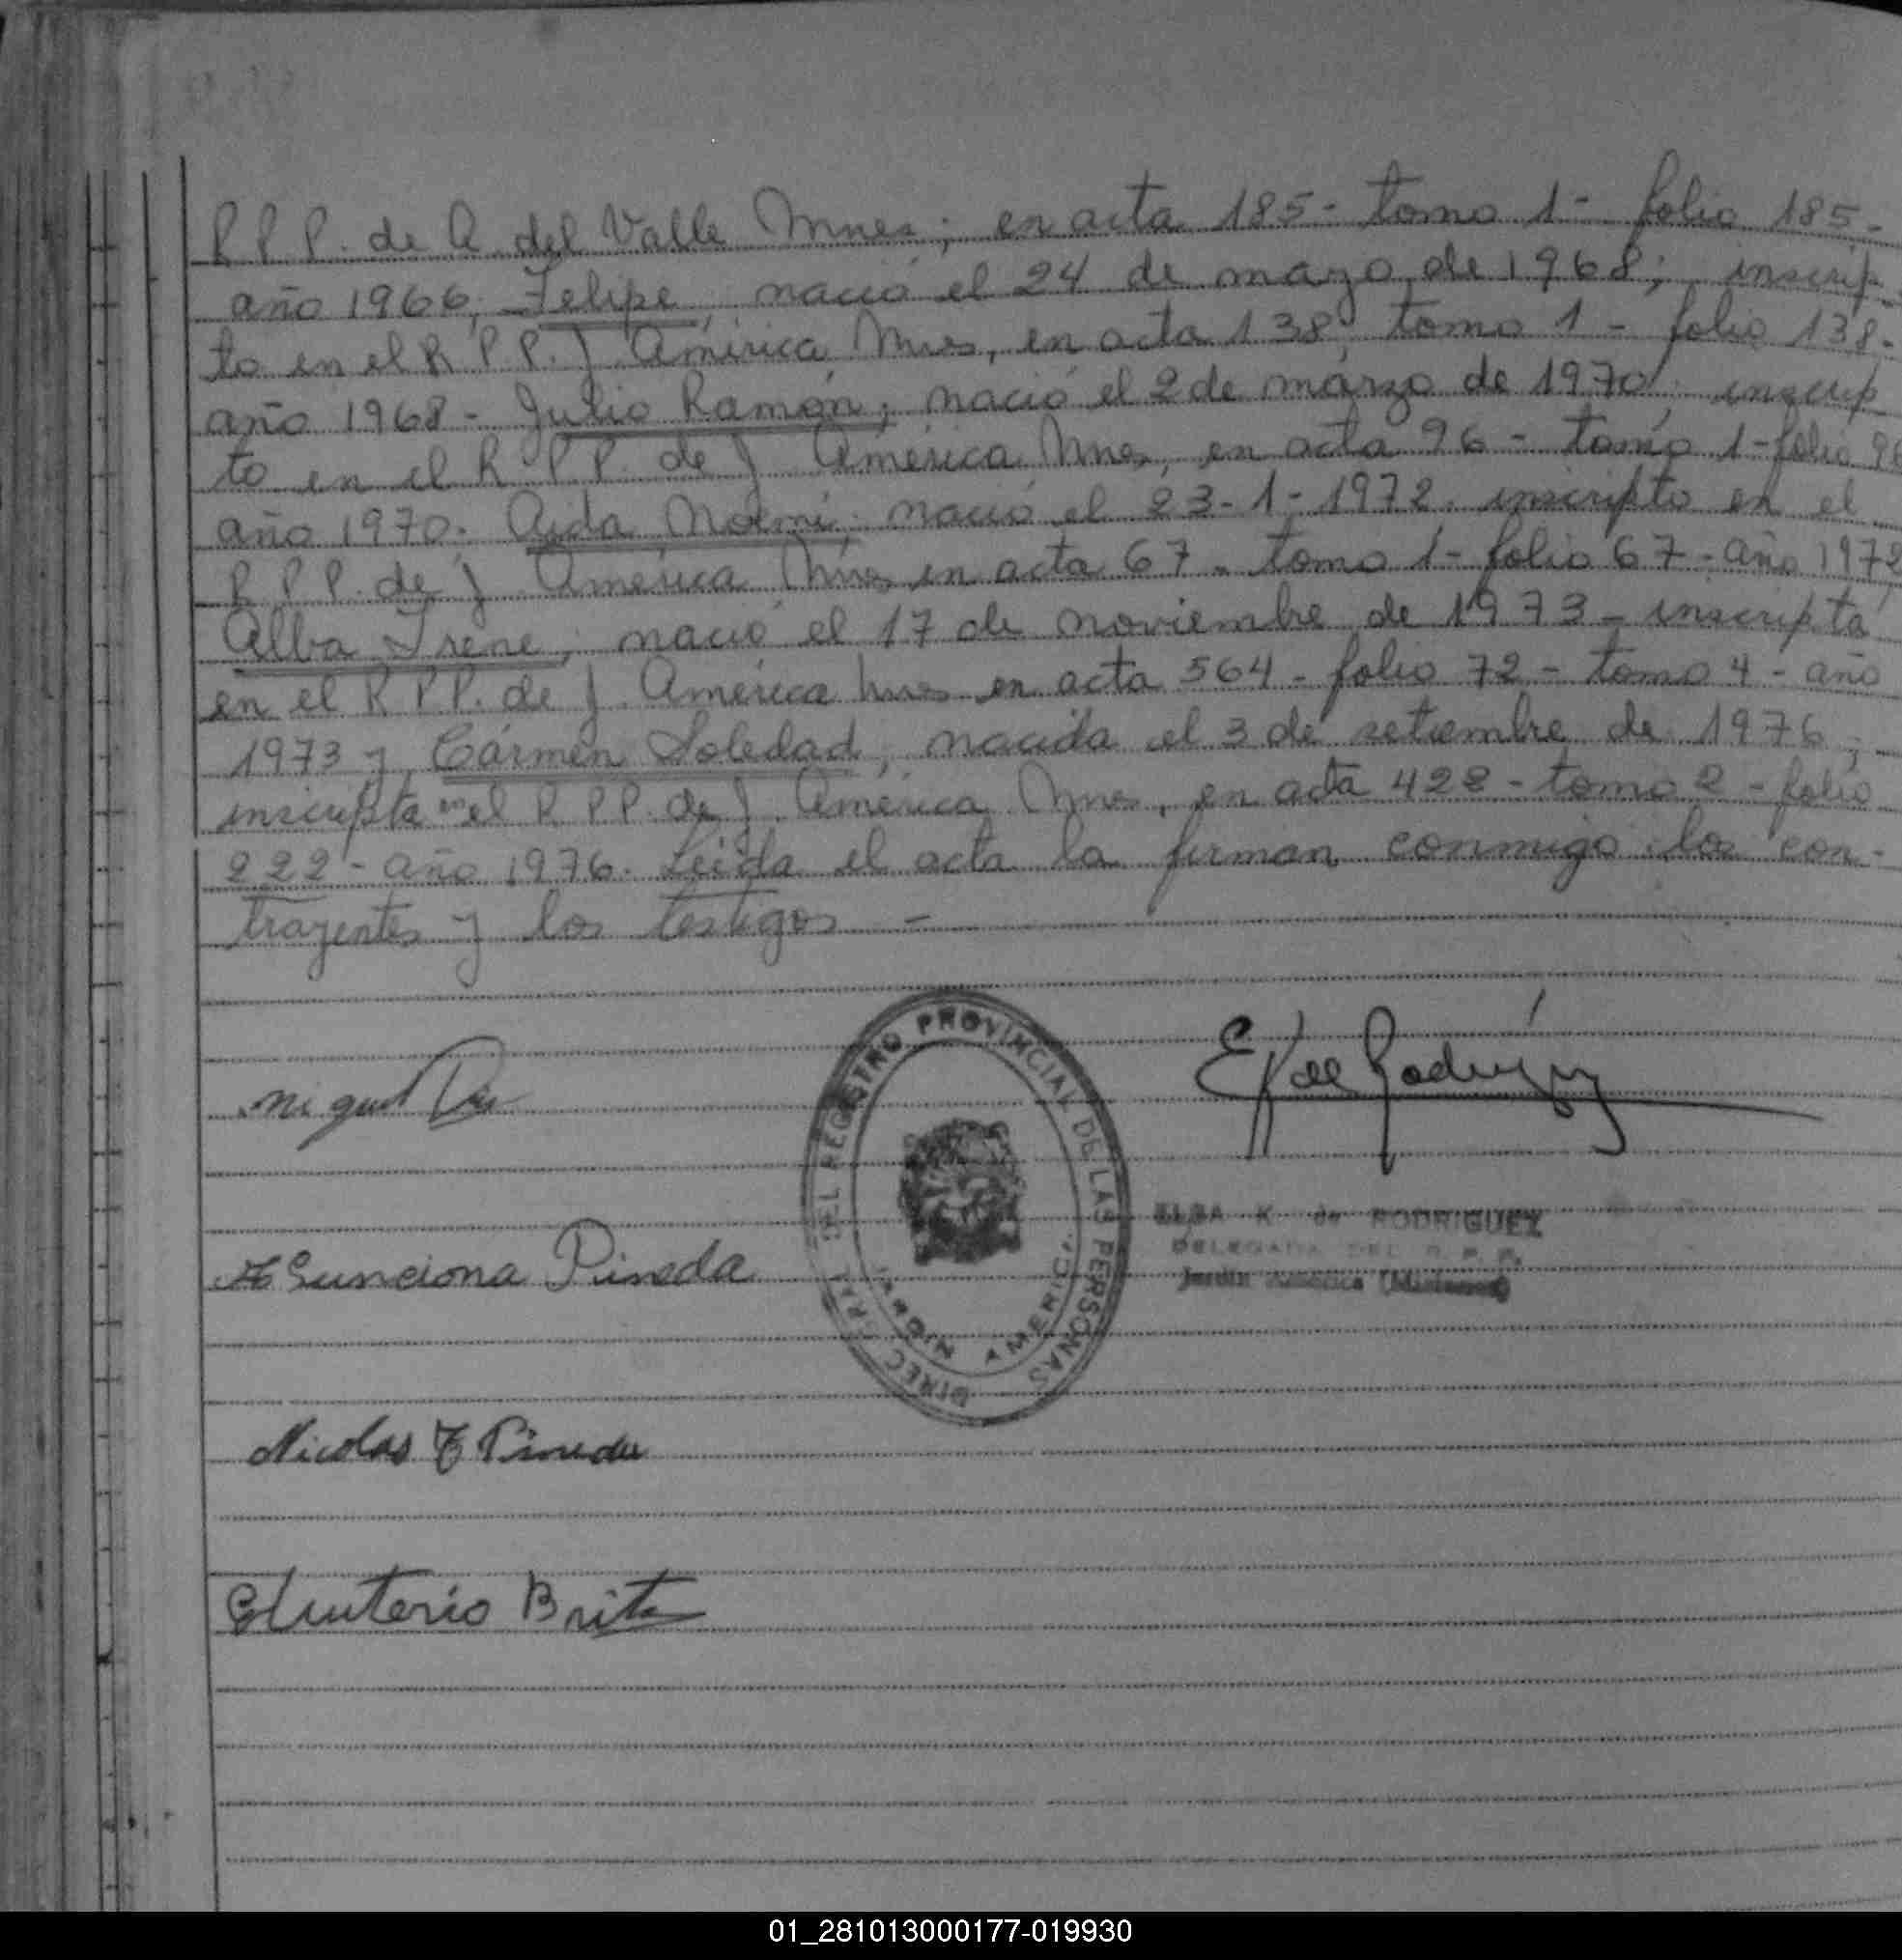 R P P. de A. del Valle Mnes; en acta 185- tomo 1- folio 185-
año 1966; Felipe, nació el 24 de marzo de 1968; inscrip-
to en el R P P. J. América Mnes, en acta 138, tomo 1 - folio 138-
año 1968 - Julio Ramón; nació el 2 de marzo de 1970; inscrip
to en el R P P. de J. América Mnes, en acta 96 - tomo 1 - folio 96
año 1970. Aida Noemi; nació el 23-1-1972. inscripto en el
R P P. de J. América Mnes en acta 67 - tomo 1 - folio 67 - año 1972
Alba Irene; nació el 17 de noviembre de 1973 - inscripta
en el R P P. de J. América Mnes en acta 564 - folio 72 - tomo 4 - año
1973 y Cármen Soledad, nacida el 3 de setiembre de 1976;
inscripta en el R P P. de J. América Mnes, en acta 422 - tomo 2 - folio
222 - año 1976. Leída el acta la firman conmigo los con-
trayentes y los testigos -
Miguel
E K de Rodriguez
DIREC GRAL DEL REGISTRO PROVINCIAL DE LAS PERSONAS
JARDIN AMERICA
ELBA K. de RODRIGUEZ
DELEGADA DEL R. P. P.
Jardín América (Misiones)
Asunciona Pineda
Nicolas F Pineda
Eleuterio Brite
01_281013000177-019930